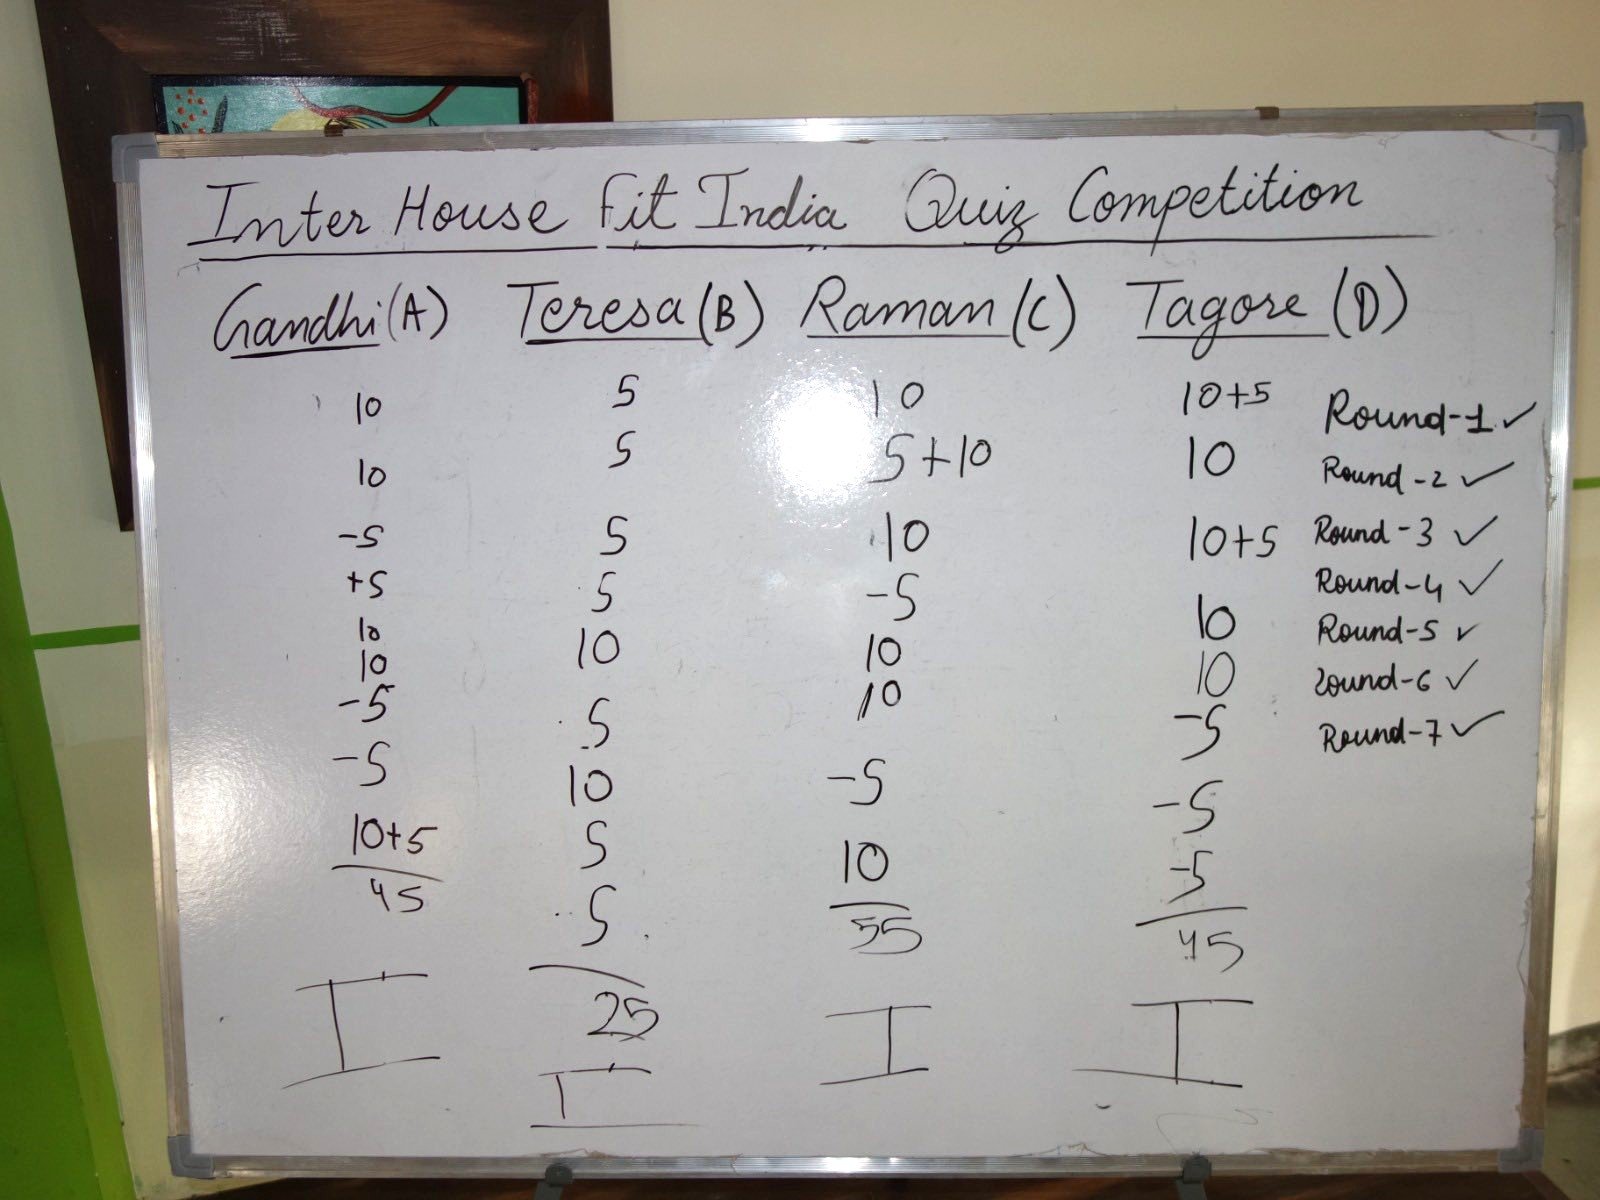 Inter House Fit India Quiz Competition
Gandhi (A) Teresa (B) Raman (C) Tagore (D)
10 5 10 10+5 Round-1 ✓
10 5 5+10 10 Round-2 ✓
-5 5 10 10+5 Round-3 ✓
+5 5 -5 Round-4 ✓
10 10 10 10 Round-5 ✓
10 10 10 Round-6 ✓
-5 5 -5 Round-7 ✓
-5 10 -5 -5
10+5 5 10 -5
45 5 55 45
25
I I I I